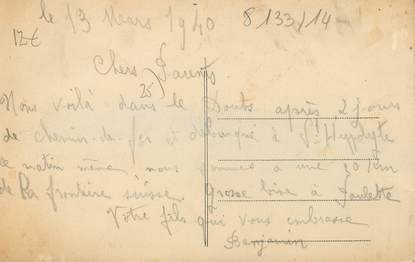 le 13 Mars 1940
8/133/14
12€
Chers Parents
25
Nous voilà dans le Doubs après 2 jours
de chemin de fer et débarqué à St Hyppolyte
ce matin même nous sommes a une 20 Km
de la frontière suisse Grosse bise à Paulette
Votre fils qui vous embrasse
Benjamin